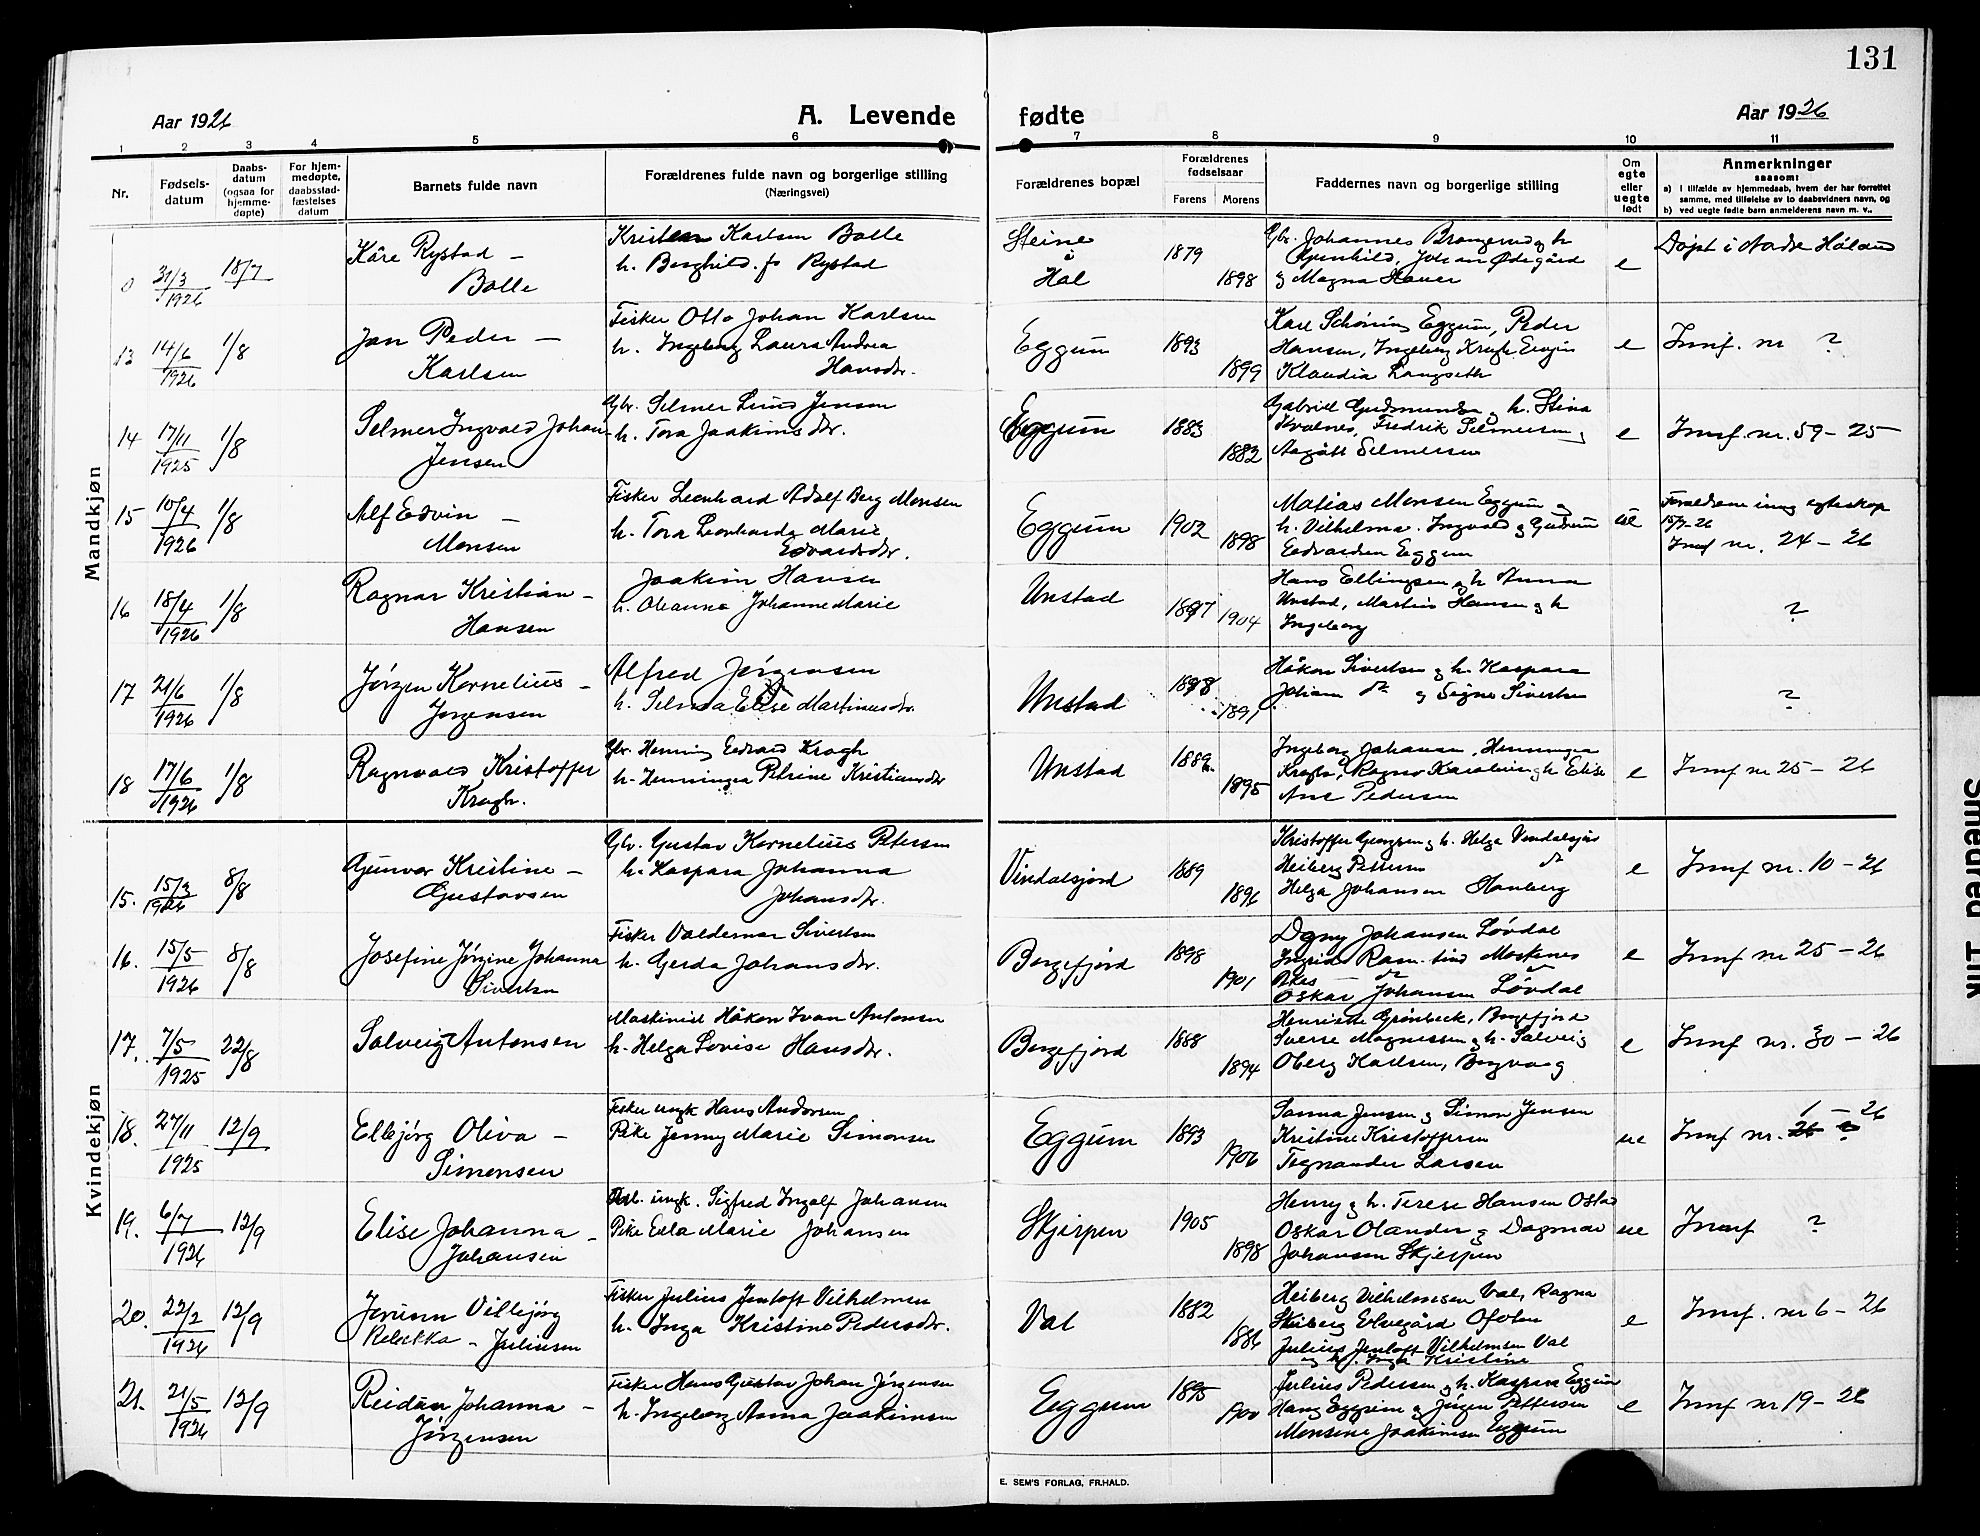 131
Aar 1926
A. Levende
fødte
Aar 1926
1 2 3 4 5 6 7 8 9 10 11
Nr.
Fødsels-
datum
Daabs-
datum
(ogsaa for
hjemme-
døpte)
For hjem-
medøpte,
daabsstad-
fæstelses
datum
Barnets fulde navn
Forældrenes fulde navn og borgerlige stilling
(Næringsvei)
Forældrenes bopæl
Forældrenes
fødselsaar
Farens
Morens
Faddernes navn og borgerlige stilling
Om
egte
eller
uegte
født
Anmerkninger
saasom:
a) I tilfælde av hjemmedaab, hvem der har forrettet
samme, med tilføielse av to daabsvidners navn, og
b) ved uegte fødte barn anmelderens navn m. v..
Mandkjøn
0 31/3 1926 18/7
Kåre Rystad –
Bolle
Karlsen Bolle
h. Borghild f. Rystad
Steine
i
Hol
1879 1898
Gbr. Johannes
Johan Ødegård
og Magna
e
Døpt i
13 14/6 1926 1/8
Jan Peder –
Karlsen
Fisker Otto Johan Karlsen
h. Ingeborg Laura Andrea
Hansdtr.
Eggum
1893 1899
Karl Schöning Eggum, Peder
Hansen, Ingeborg Krogh
Klaudia Langseth
e
Innf. nr ?
14 17/11 1925 1/8
Selmer Ingvald Johan
Jensen
Gbr. Selmer Lund Jensen
h. Tora Joakimsdtr.
Eggum
1883 1882
Gabriel Gudmundsen og h. Stina
Kvalnes, Fredrik Selmersen og
Selmersen
e
Innf. nr. 59 – 25
15 10/4 1926 1/8
Alf Edvin –
Monsen
Fisker Leonhard Adolf Berg Monsen
h. Tora Leonharda Marie
Edvardsdtr.
Eggum
1902 1898
Matias Monsen Eggum og
h. Vilhelma. Ingvald og Gudrun
Edvardsen Eggum
ue
Forældrene inng egteskap
15/7-26
Innf nr. 24 – 26
16 18/4 1926 1/8
Ragnar Kristian –
Hansen
Joakim Hansen
h. Oleanna Johanne Marie
Unstad
1897 1904
Hans Ellingsen og h Anna
Unstad, Martin Hansen og h
Ingeborg
?
17 21/6 1926 1/8
Jørgen Kornelius –
Jørgensen
Alfred Jørgensen
h. Selma Elise Martinusdtr.
Unstad
1898 1891
Håkon Sivertsen og h. Kaspara
Johan do og Signe Sivertsen
?
18 17/6 1926 1/8
Ragnvald Kristoffer
Krogh.
Gbr. Henning Edvard Krogh
h. Henningea Petrine Kristiansdtr
Unstad
1889 1895
Ingeborg Johansen, Henningea
Krogh, Ragnv Karolin og h Elise
Ane Pedersen
e
Innf nr 25 – 26
Kvindekjøn
15. 15/3 1926 8/8
Gunvor Kristine –
Gustavsen
Gbr. Gustav Kornelius Petersen
h. Kaspara Johanna
Johansdtr.
Vindalsjord
1889 1896
Kristoffer Georgsen og h. Helga Vindalsjord
Heiberg Pettersen do
Helga Johansen Hanberg
e
Innf nr. 10 – 26
16. 15/5 1926 8/8
Josefine Jørgine Johanna
Sivertsen
Fisker Valdemar Sivertsen
h. Gerda Johansdtr.
Borgefjord
1898 1901
Dagny Johansen Løvdal
Ingrid Moskenes
Oskar Johansen Løvdal
e
Innf nr 25 – 26
17. 7/5 1925 22/8
Solveig Antonsen
Maskinist Håkon Ivan Antonsen
h. Helga Lovise Hansdtr.
Borgefjord
1888 1894
Henriette Grønbeck, Borgefjord
Sverre Magnussen og h. Solveig
Oberg Karlsen, Borgvaag
e
Innf nr. 30 – 26
18. 27/11 1925 12/9
Ellbjørg Oliva –
Simonsen
Fisker ungk Hans Andersen
Pike Jenny Marie Simonsen
Eggum
1893 1906
Sanna Jensen og Simon Jensen
Kristine Kristoffersen
Tegnander Larsen
ue
Innf nr. 1 – 26
19. 6/7 1926 12/9
Elise Johanna –
Johansen
ungk. Sigfred Ingolf Johansen
Pike Edla Marie Johansen
Skjerpen
1905 1898
Henry og h. Terese Hansen Ostad
Oskar Olander og Dagmar
Johansen Skjerpen
ue
Innf ?
20. 22/2 1926 12/9
Jorunn Villbjørg
Rebekka – Juliussen
Fisker Julius Jentoft Vilhelmsen
h. Inga Kristine Pedersdtr.
Val
1882 1886
Heiberg Vilhelmsen Val, Ragna
Elvegård Ofoten
Julius Jentoft Vilhelmsen Val
og h. Inga Kristine
e
Innf. nr 6 – 26
21. 21/5 1926 12/9
Reidun Johanna –
Jørgensen
Fisker Hans Gustav Johan Jørgensen
h. Ingeborg Anna Joakimsen
Eggum
1895 1900
Julius Pedersen og h. Kaspara Eggum
Hans Eggum og Jørgen Pettersen
Monsine Joakimsen Eggum
e
Innf nr 19 – 26
E. SEM'S FORLAG, FR.HALD.